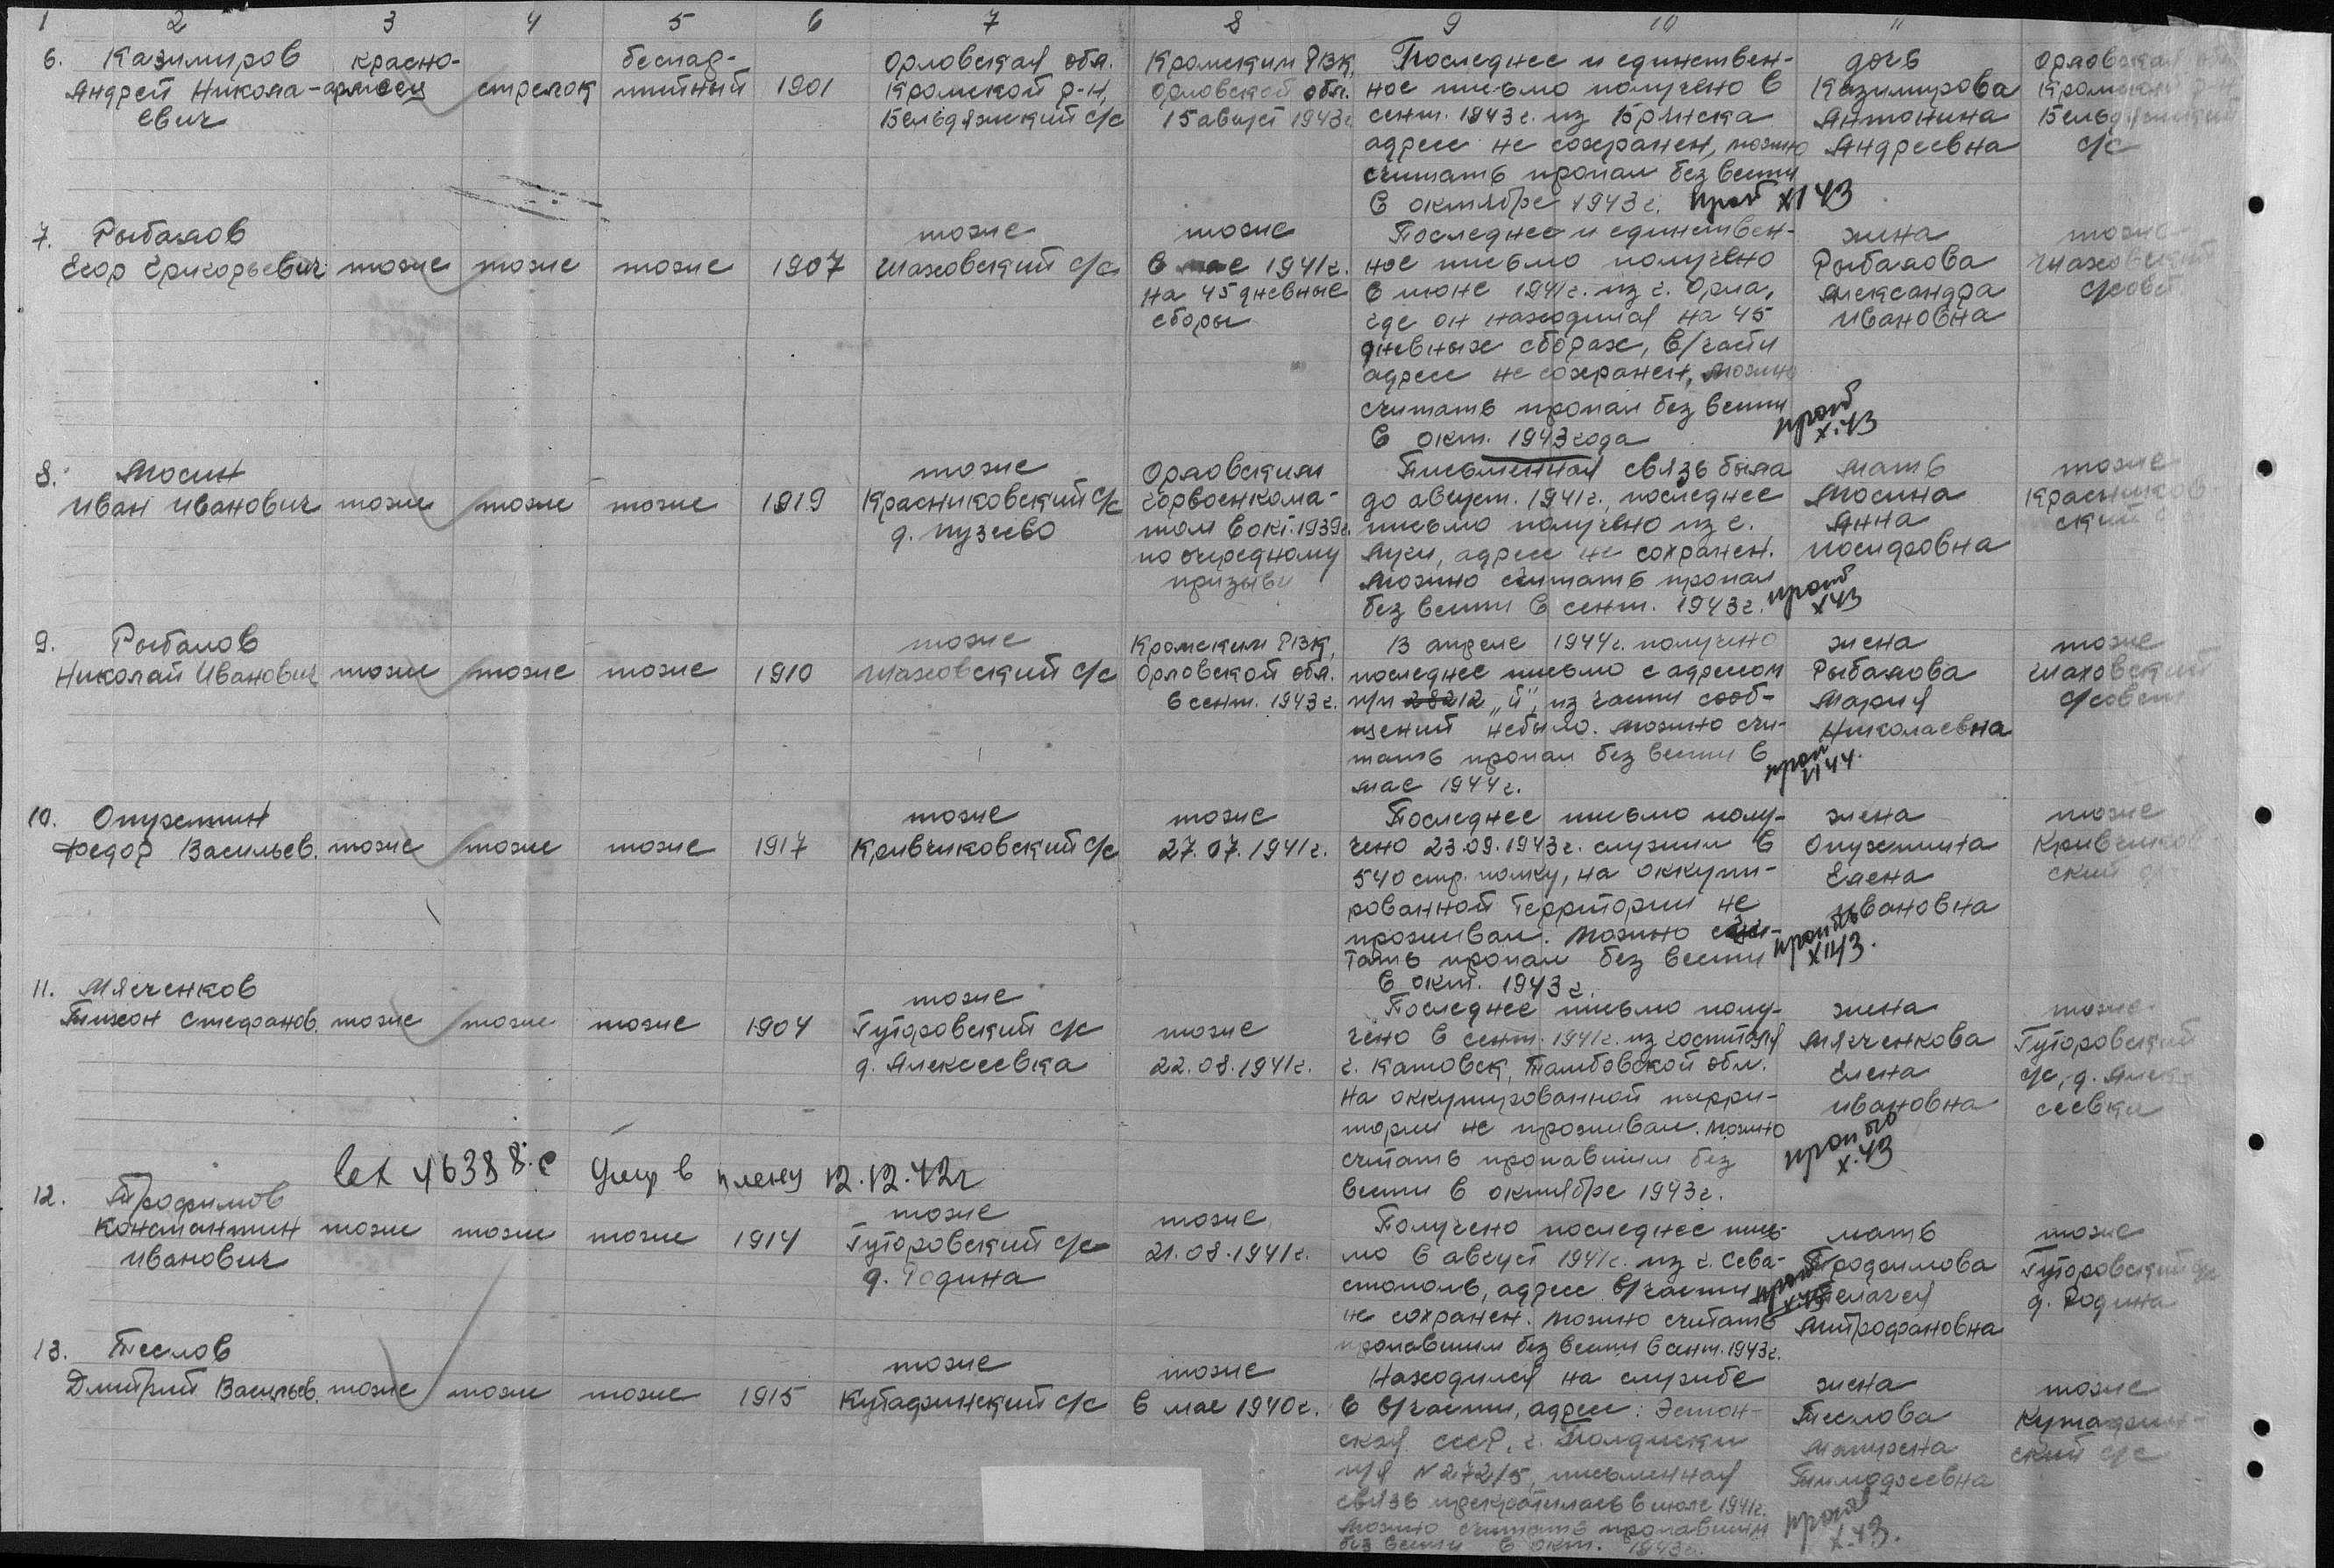 1 2 3 4 5 6 7 8 9 10 11
6. Казимиров
Андрей Никола-
евич
красно-
армеец
стрелок
беспар-
тийный
1901
Орловская обл.
Кромской р-н,
Бельдяжский с/с
Кромским РВК,
Орловской обл.
15 август 1943г.
Последнее и единствен-
ное письмо получено в
сент. 1943 г. из Брянска
адрес не сохранен, можно
считать пропал без вести
в октябре 1943 г.
XI 43
дочь
Казимирова
Антонина
Андреевна
Орловская обл.
Кромской р-н
Бельдяжский
с/с
7. Рыбалов
Егор Григорьевич
тоже
тоже
тоже
1907
тоже
Шаховский с/с
тоже
в мае 1941г.
на 45 дневные
сборы
Последнее и единствен-
ное письмо получено
в июне 1941г. из г. Орла,
где он находился на 45
дневных сборах, в/части
адрес не сохранен, можно
считать пропал без вести
в окт. 1943 года
проп
X.43
жена
Рыбалова
Александра
Ивановна
тоже
Шаховский
с/совет
8. Мосин
Иван Иванович
тоже
тоже
тоже
1919
тоже
Красниковский с/с
д. Пузеево
Орловским
горвоенкома-
том в окт. 1939г.
по очередному
призыву
Письменная связь была
до август. 1941г., последнее
письмо получено из г.
Луги, адрес не сохранен.
Можно считать пропал
без вести в сент. 1943г.
проп
X43
мать
Мосина
Анна
Иосифовна
тоже
Красников-
ский
9. Рыбалов
Николай Иванович
тоже
тоже
тоже
1910
тоже
Шаховский с/с
Кромским РВК,
Орловской обл.
в сент. 1943г.
В апреле 1944г. получено
последнее письмо с адресом
п/п 28212 „й", из части сооб-
щений небыло. Можно счи-
тать пропал без вести в
мае 1944г.
проп
VI 44.
жена
Рыбалова
Мария
Николаевна
тоже
Шаховский
с/совет
10. Опухтин
Федор Васильев.
тоже
тоже
тоже
1917
тоже
Кривчиковский с/с
тоже
27.07.1941г.
Последнее письмо полу-
чено 23.09.1943г. служил в
540 стр. полку, на оккупи-
рованной территории не
проживал. Можно счи-
тать пропал без вести
в окт. 1943г.
проп
XI43.
жена
Опухтина
Елена
Ивановна
тоже
Кривчиков-
ский с/с
11. Мяченков
Тихон Стефанов.
тоже
тоже
тоже
1904
тоже
Гуторовский с/с
д. Алексеевка
тоже
22.08.1941г.
Последнее письмо полу-
чено в сент. 1941г. из госпиталя
г. Катовск, Тамбовской обл.
На оккупированной терри-
тории не проживал. Можно
считать пропавшим без
вести в октябре 1943г.
проп
X.43
жена
Мяченкова
Елена
Ивановна
тоже
Гуторовский
с/с, д. Алек-
сеевка
46388 с Умер в плену 12.12.42г
12. Трофимов
Константин
Иванович
тоже
тоже
тоже
1914
тоже
Гуторовский с/с
д. Родина
тоже
21.08.1941г.
Получено последнее пись-
мо в август 1941г. из г. Сева-
стополь, адрес в/части
не сохранен. Можно считать
пропавшим без вести в сент. 1943г.
проп
X.43
мать
Трофимова
Пелагея
Митрофановна
тоже
Гуторовский с/с
д. Родина
13. Теслов
Дмитрий Васильев.
тоже
тоже
тоже
1915
тоже
Кутафинский с/с
тоже
в мае 1940г.
Находился на службе
в в/части, адрес: Эстон-
ская СССР, г. Палдиски
п/я №272/5, письменная
связь прекратилась в июле 1941г.
Можно считать пропавшим
без вести в окт. 1943г.
проп
X.43.
жена
Теслова
Матрена
Тимофеевна
тоже
Кутафин-
ский с/с